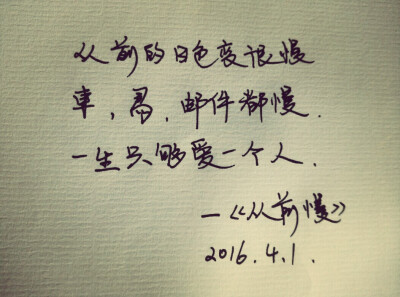 从前的日色变很慢
車，馬，邮件都慢.
一生只够爱一个人.
—《从前慢》
2016.4.1.